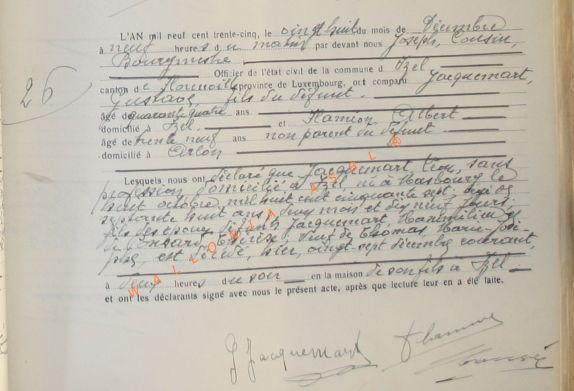 26
L'AN mil neuf cent trente-cinq, le vingthuit du mois de Décembre
à neuf heures du matin par devant nous Joseph, Cousin,
Bourgmestre
Officier de l'état civil de la commune d'Izel
canton de Florenville province de Luxembourg, ont comparu Jacquemart,
Gustave, fils du défunt
âgé de quarante quatre ans
domicilié à Izel et Hamion Albert
âgé de trente neuf ans non parent du défunt
domicilié à Arlon
Lesquels nous ont déclaré que Jacquemart Léon, sans
profession domicilié à Izel né à Rasbourg le
huit octobre mil huit cent cinquante sept âgé de
septante huit ans, deux mois et dix neuf jours,
fils des époux défunts Jacquemart Maximilien et
Thérèse, veuf de Thomas, Marie
est décédé, hier, vingt sept décembre courant,
à deux heures du soir en la maison de son fils à Izel
et ont les déclarants signé avec nous le présent acte, après que lecture leur en a été faite.
WALLONIA ASBL ©
G Jacquemart